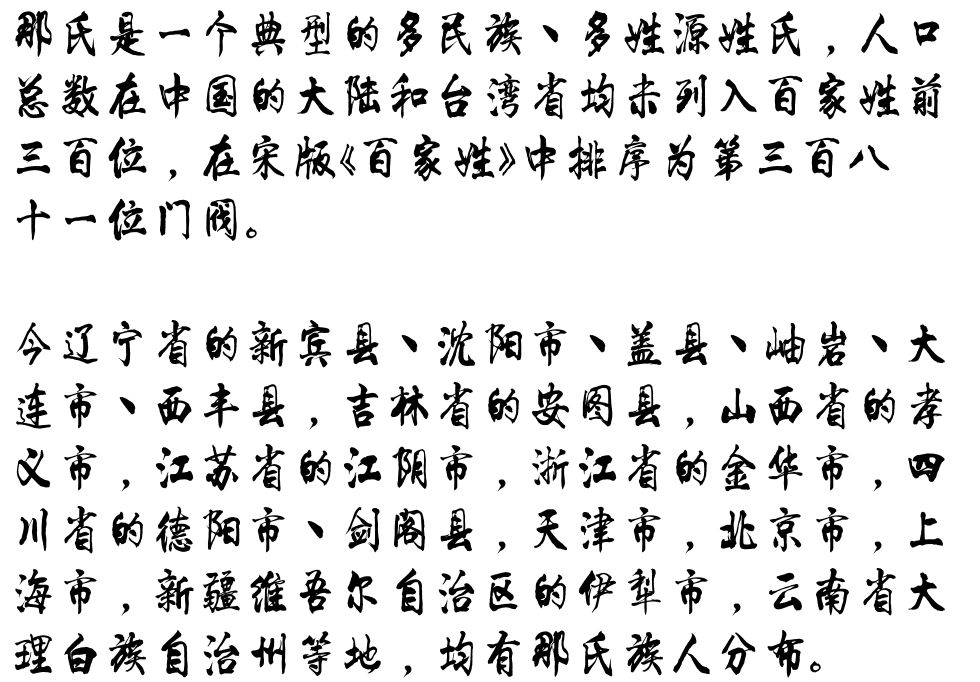 那氏是一个典型的多民族、多姓源姓氏，人口
总数在中国的大陆和台湾省均未列入百家姓前
三百位，在宋版《百家姓》中排序为第三百八
十一位门阀。
今辽宁省的新宾县、沈阳市、盖县、岫岩、大
连市、西丰县，吉林省的安图县，山西省的孝
义市，江苏省的江阴市，浙江省的金华市，四
川省的德阳市、剑阁县，天津市，北京市，上
海市，新疆维吾尔自治区的伊犁市，云南省大
理白族自治州等地，均有那氏族人分布。